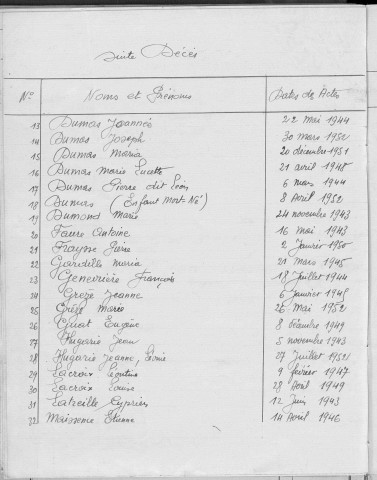 Suite Décès
N° Noms et Prénoms Dates des Actes
13 Dumas Joannès 22 Mai 1944
14 Dumas Joseph 30 mars 1952
15 Dumas Maria 20 décembre 1951
16 Dumas Marie Lucette 21 avril 1948
17 Dumas Pierre dit Léon 6 mars 1944
18 Dumas (Enfant Mort-Né) 8 Avril 1952
19 Dumond Marie 24 novembre 1943
20 Faure Antoine 16 Mai 1943
21 Fraysse 2 Janvier 1950
22 Gardelle Maria 21 Mars 1945
23 Genevrière François 18 Juillet 1944
24 Grèze Jeanne 6 Janvier 1945
25 Grèze Marie 26 Mai 1952
26 Eugène 8 Décembre 1949
27 Hugarie Jean 5 novembre 1943
28 Hugarie Jeanne, 27 Juillet 1952
29 Lacroix Léontine 9 février 1947
30 Lacroix Louise 28 Avril 1949
31 Latreille Cyprien 12 Juin 1943
32 Maissence Etienne 14 Avril 1946